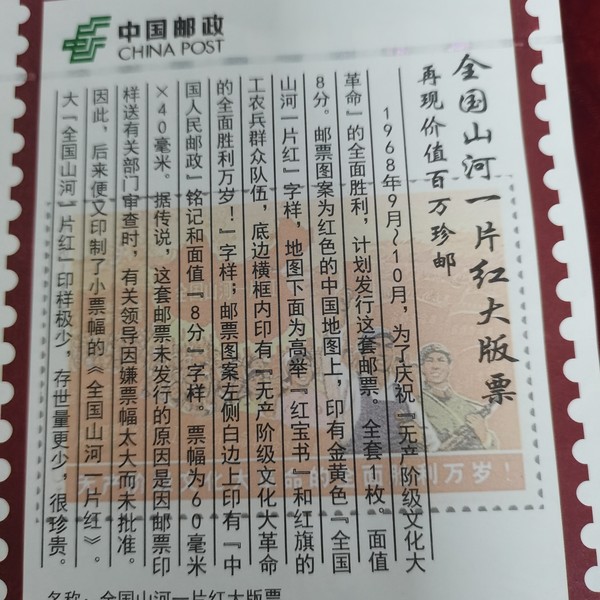 中国邮政
CHINA POST
全国山河一片红大版票
再现价值百万珍邮
1968年9月~10月，为了庆祝『无产阶级文化大
革命』的全面胜利，计划发行这套邮票。全套1枚。面值
8分。邮票图案为红色的中国地图上，印有金黄色『全国
山河一片红』字样，地图下面为高举『红宝书』和红旗的
工农兵群众队伍，底边横框内印有『无产阶级文化大革命
的全面胜利万岁！』字样；邮票图案左侧白边上印有『中
国人民邮政』铭记和面值『8分』字样。票幅为60毫米
×40毫米。据传说，这套邮票未发行的原因是因邮票印
样送有关部门审查时，有关领导因嫌票幅太大而未批准。
因此，后来便又印制了小票幅的《全国山河一片红》。
大『全国山河一片红』印样极少，存世量更少，很珍贵。
名称：全国山河一片红大版票